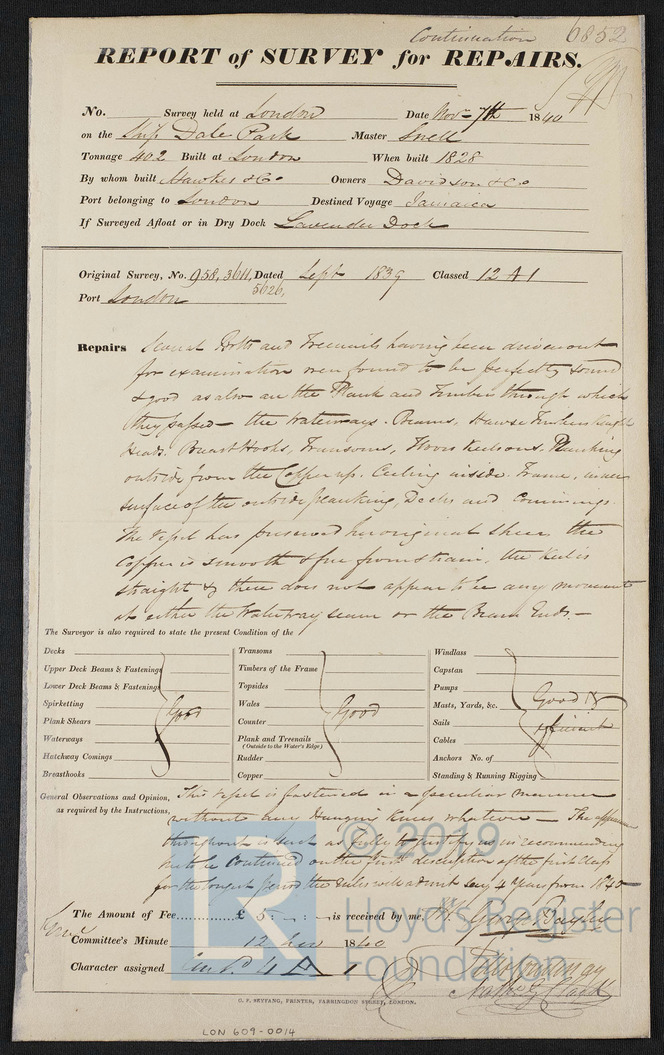 Continuation 6852
REPORT of SURVEY for REPAIRS.
No. Survey held at London Date Nov 7th 1840
on the Ship Dale Park Master Snell
Tonnage 402 Built at London When built 1828
By whom built Hawkes & Co Owners Davidson & Co
Port belonging to London Destined Voyage Jamaica
If Surveyed Afloat or in Dry Dock Lavender Dock
Original Survey, No. 958, 3611, Dated Sept 1839 Classed 12 A 1
5626,
Port London
Repairs Several Bolts and Treenails having been driven out
for examination were found to be perfectly sound
& good as also are the Plank and Timber through which
they passed - the Waterways. Beams, Hawse Timbers Knight
Heads. Breast Hooks, Transoms, Floors Keelsons, Planking
outside from the Copper up. Ceiling inside. Frame, inner
surface of the outside planking, Decks and Comings.
The Vessel has preserved her original sheer, the
Copper is smooth & free from strain, the Keel is
straight & there does not appear to be any movement
at either the Waterway seam or the Beam Ends. -
The Surveyor is also required to state the present Condition of the
Decks Transoms Windlass
Upper Deck Beams & Fastenings Timbers of the Frame Capstan
Lower Deck Beams & Fastenings Topsides Pumps
Spirketting Good Wales Good Masts, Yards, &c. Good &
Plank Shears Counter Sails efficient
Waterways Plank and Treenails Cables
(Outside to the Water's Edge)
Hatchway Comings Rudder Anchors No. of
Breasthooks Copper Standing & Running Rigging
General Observations and Opinion, This Vessel is fastened in a peculiar manner
as required by the Instructions, without any Hanging Knees whatever - The
throughout is such as fully to justify us in recommending
her to be Continued on the first description of the first Class
for the longest period the Rules will admit say 4 Years from 1840
The Amount of Fee............ £ 5 : - : - is received by me,
Committee's Minute 12 Nov 1840
Character assigned 4 A 1
© 2019
LR
Lloyd's Register
Foundation
C. F. SEYFANG, PRINTER, FARRINGDON STREET, LONDON.
LON 609-0014